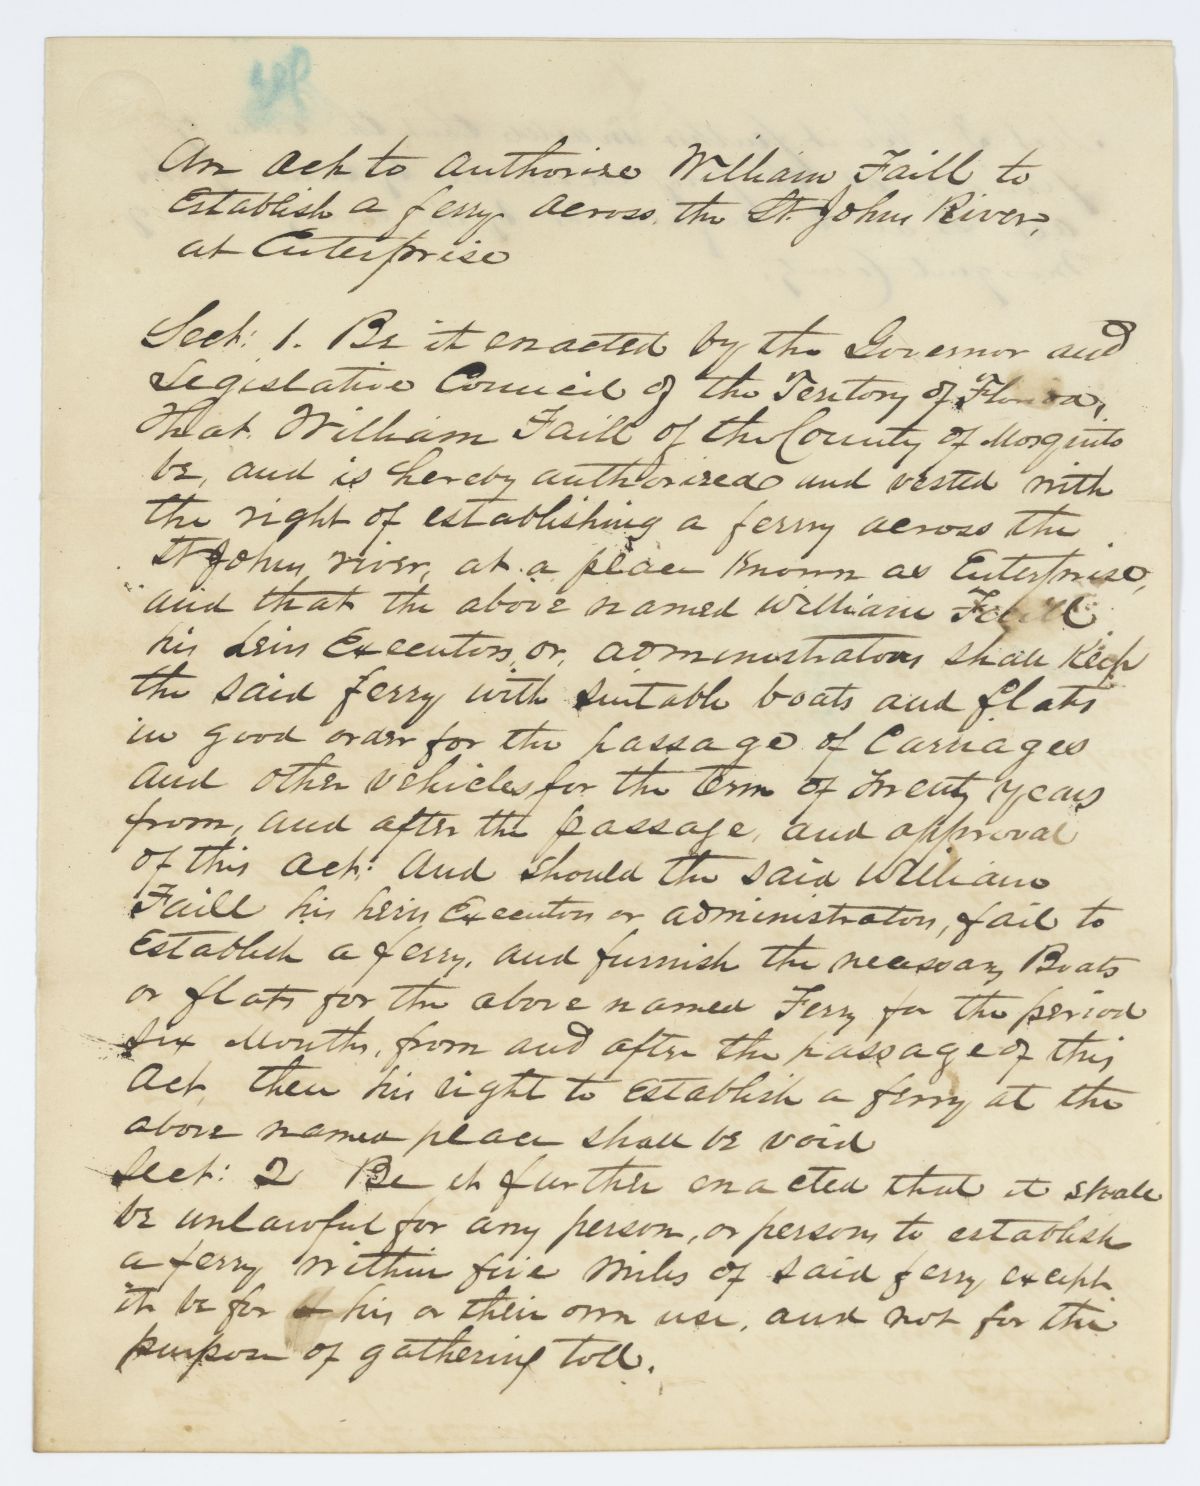 An Act to authorise William Faill to
Establish a ferry across the St. Johns River,
at Enterprise
Sect: 1. Be it enacted by the Governor and
Legislative Council of the Territory of Florida,
That William Faill of the County of Mosquito
be, and is hereby authorised and vested with
the right of establishing a ferry across the
St Johns river, at a place known as Enterprise,
and that the above named William Faill
his heirs Executors, or, administrators shall keep
the said ferry with suitable boats and flats
in good order for the passage of Carriages
and other vehicles for the term of Twenty years
from, and after the passage, and approval
of this Act: And should the said William
Faill his heirs Executors or administrators, fail to
establish a ferry, and furnish the necessary Boats
or flats for the above named Ferry for the period
Six Months, from and after the passage of this
Act, then his right to establish a ferry at the
above named place shall be void
Sect: 2 Be it further enacted that it shall
be unlawful for any person, or persons to establish
a ferry within five miles of said ferry except
it be for his or their own use, and not for the
purpose of gathering toll.